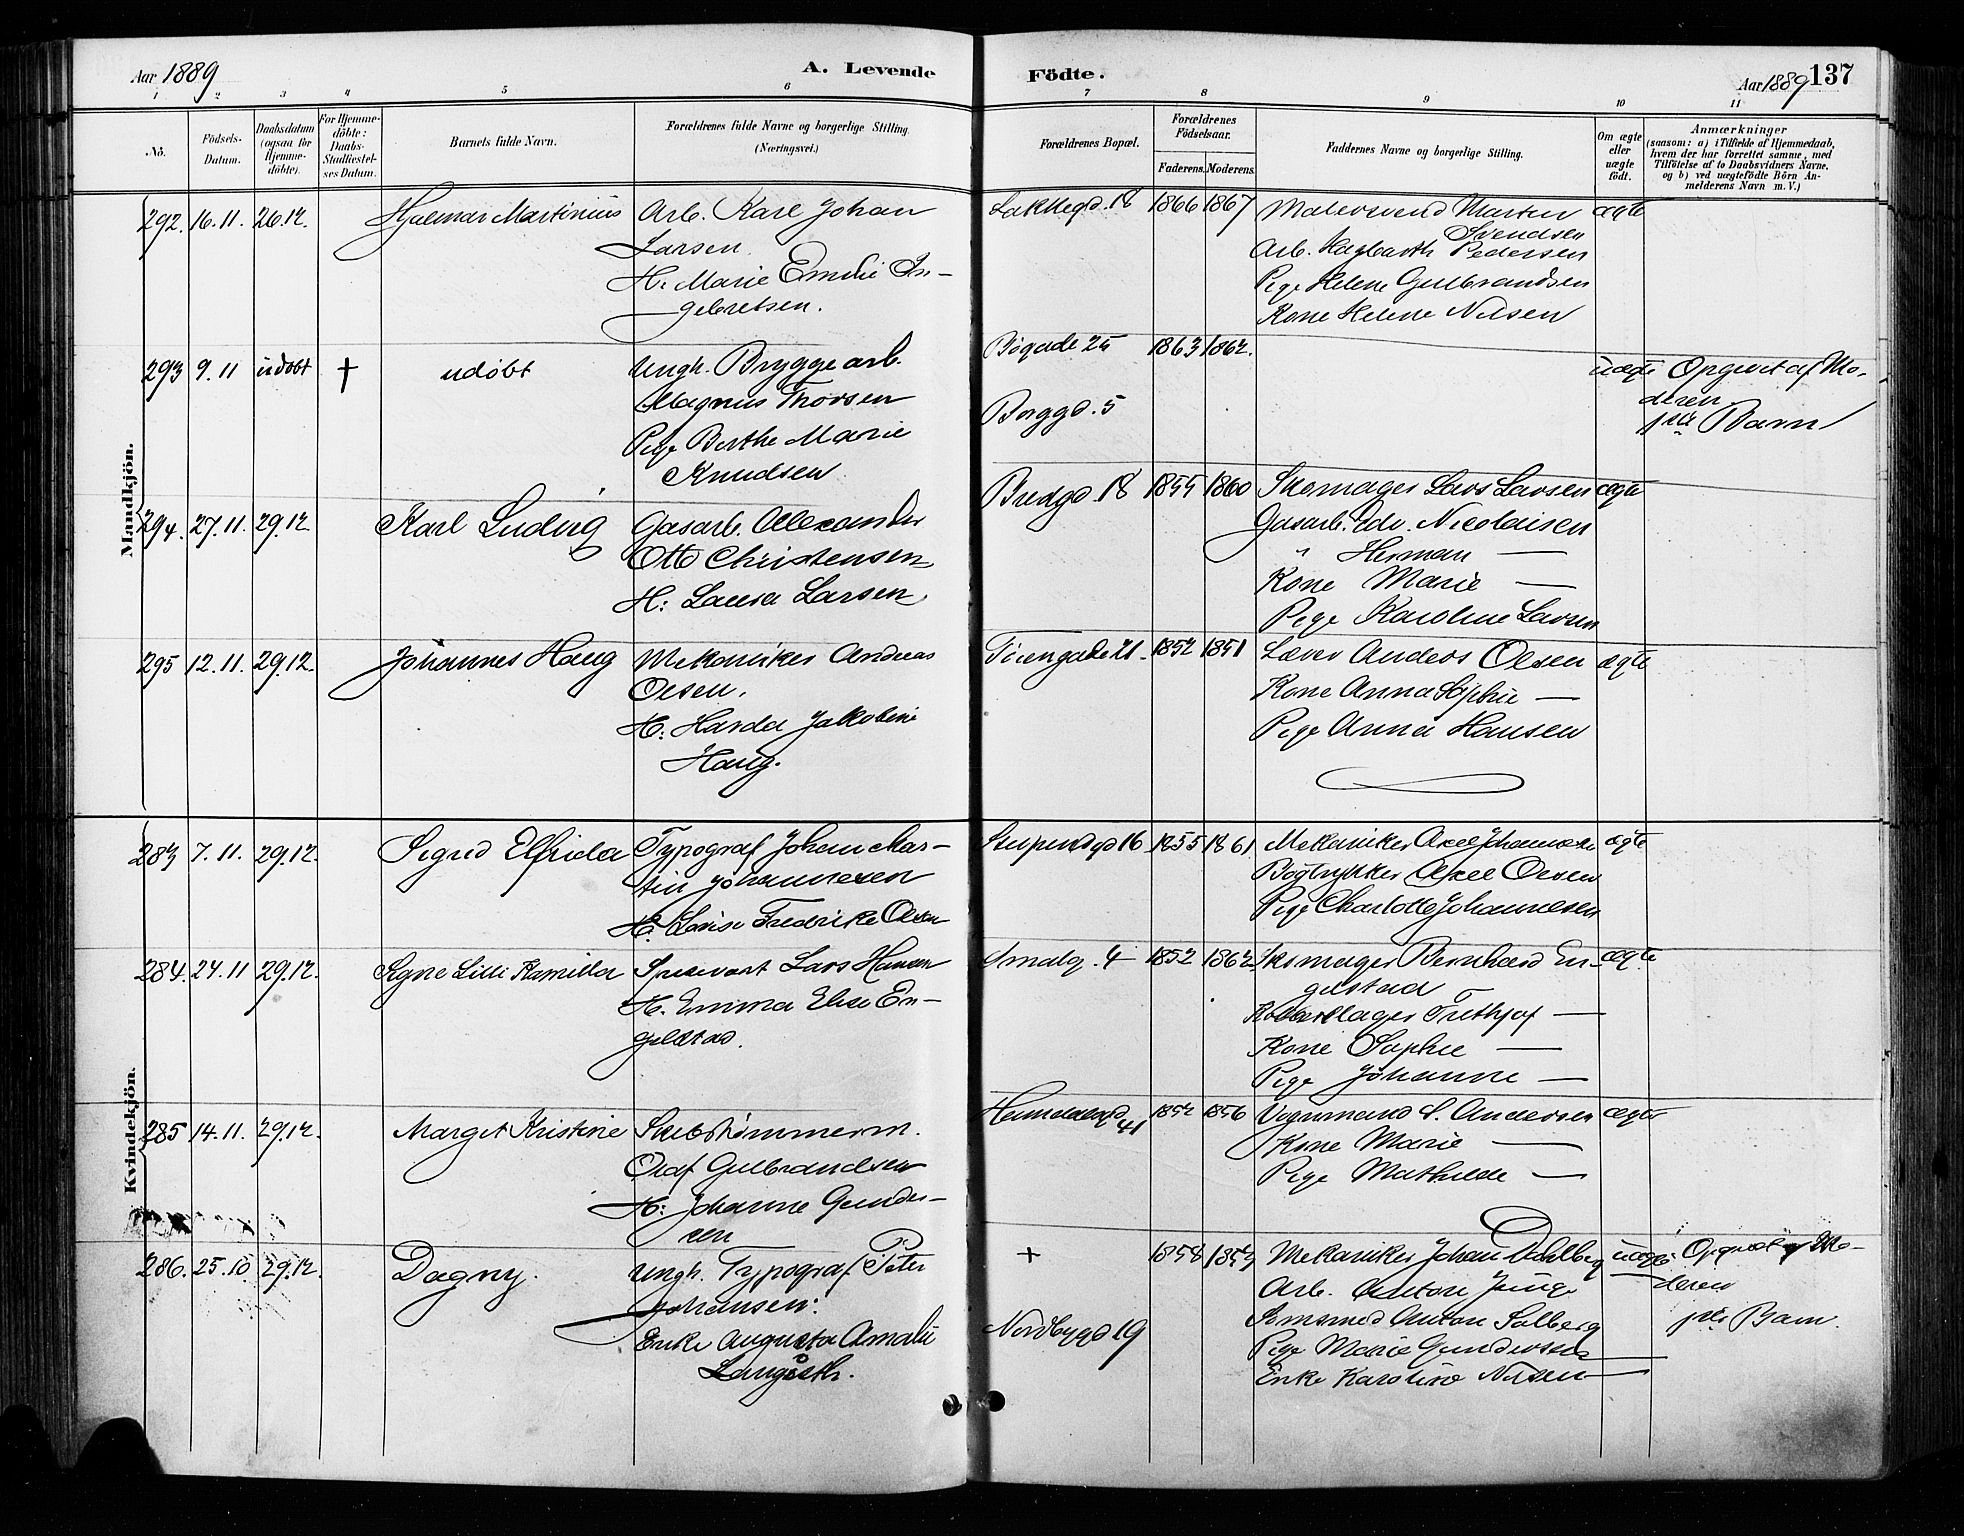 Aar 1889
A. Levende
Födte.
Aar 1889
137
1 2 3 4 5 6 7 8 9 10 11
No.
Födsels-Datum.
Daabsdatum (ogsaa for Hjemme-döbte).
For Hjemme-döbte: Daabs-Stadfæstel-ses Datum.
Barnets fulde Navn.
Forældrenes fulde Navne og borgerlige Stilling.
(Næringsvei.)
Forældrenes Bopæl.
Forældrenes Födselsaar.
Faderens. Moderens.
Faddernes Navne og borgerlige Stilling.
Om ægte eller uægte födt.
Anmærkninger
(saasom: a) i Tilfælde af Hjemmedaab, hvem der har forrettet samme, med Tilföielse af to Daabsvidners Navne, og b) ved uægtefödte Börn An-melderens Navn m. V.)
Mandkjön.
292. 16.11. 26.12. Hjalmar Martinius
Arb. Karl Johan
Larsen.
H: Marie Emilie In-
gebretsen.
Lakkegd. 18 1866 1867
Malersvend Martin
Svendsen
Arb. Hagbarth Pedersen
Pige Helene Gulbrandsen
Kone Helene Nilsen
ægte
293 9.11 udøbt † udøbt
Ungk. Bryggearb.
Magnus Thorsen
Pige Berthe Marie
Knudsen.
Bøgade 25 1863 1862.
Borggd. 5
uægte
Opgivet af Mo-
deren
Barn
294. 27.11. 29.12 Karl Ludvig
Gasarb. Alexander
Otto Christensen
H: Laura Larsen
Bredgd. 18 1855 1860
Skomager Lars Larsen
Gasarb. Edv. Nicolaisen
" Herman —
Kone Marie —
Pige Karoline Larsen
ægte
295 12.11. 29.12. Johannes Haug
Mekaniker Andreas
Olsen.
H: Harda Jakobine
Haug.
Tøiengade 21. 1852 1851
Lærer Anders Olsen
Kone Anna Sophie —
Pige Anna Hansen
ægte
Kvindekjön.
283 7.11. 29.12. Sigrid Elfrida
Typograf Johan Mar-
tin Johannesen
H: Lovise Fredrikke Olsen
16 1855 1861
Mekaniker Axel Johannesen
Bogtrykker Axel Olsen
Pige Charlotte Johannesen
ægte
284. 24.11 29.12. Signe Lilli Kamilla
Lars Hansen
H. Emma Elise En-
gelstad.
Smalg. 4 1852 1862
Skomager Bernhard En-
gelstad
Frithjof —
Kone Sophie —
Pige Johanne —
ægte
285 14.11. 29.12. Margit Kristine
Skibstømmerm.
Olaf Gulbrandsen
H: Johanne Gunder-
sen
Heimdalsgd. 41 1852 1856
Vognmand S. Andersen
Kone Marie —
Pige Mathilde —
ægte
286. 25.10. 29.12. Dagny.
Ungk. Typograf Peter
Johansen.
Enke Augusta Amalie
+ 1858 1853
Nordbygd 19
Mekaniker Johan Dahlberg
Arb. Anton Junge
Anton Solberg
Pige Marie Gundersen
Enke Karoline Nilsen
uægte
Opgivet af Mo-
deren
Barn.